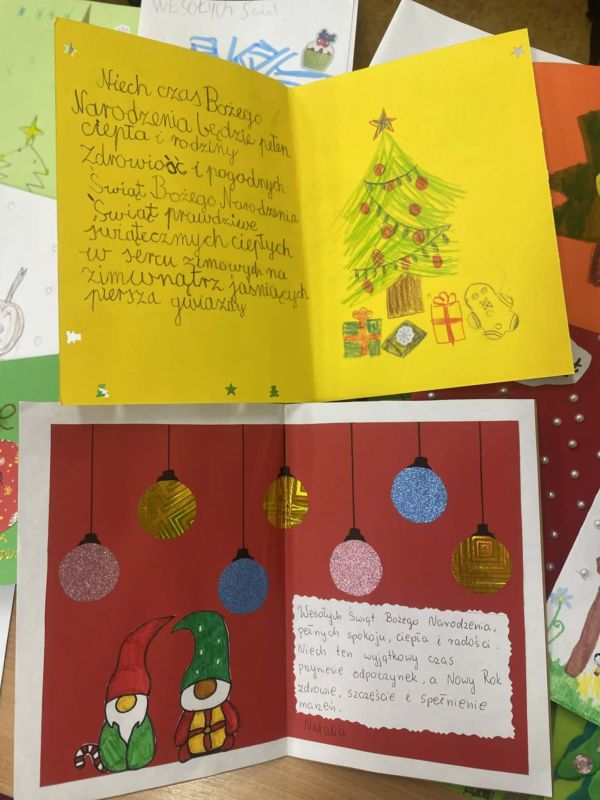 WESOŁYCH Świąt
Niech czas Bożego
Narodzenia będzie pełen
ciepła i rodziny
Zdrowiość i pogodnych
Świąt Bożego Narodzenia
Świąt prawdziwe
świątecznych ciepłych
w sercu zimowych na
zimwnątrz jaśniących
piersza gwiazny
Wesołych Świąt Bożego Narodzenia,
pełnych spokoju, ciepła i radości.
Niech ten wyjątkowy czas
przyniesie odpoczynek, a Nowy Rok
zdrowie, szczęście i spełnienie
marzeń.
Natalia